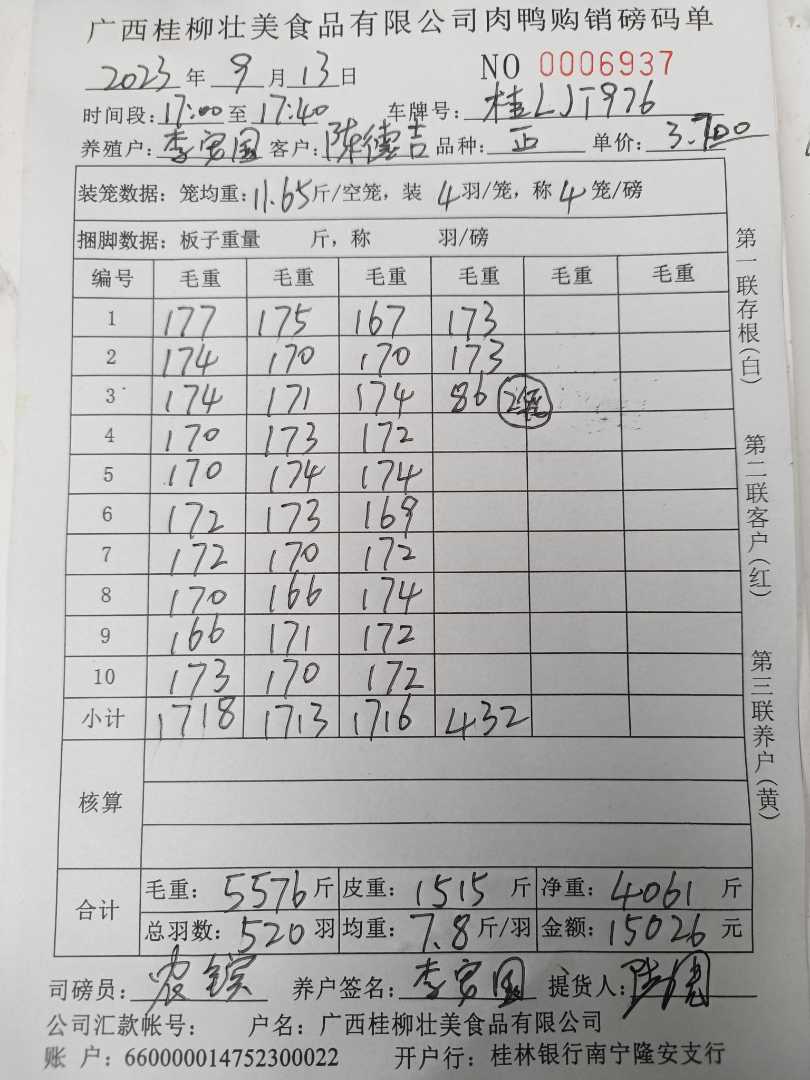 广西桂柳壮美食品有限公司肉鸭购销磅码单
2023年9月13日 NO 0006937
时间段:17:00至17:40 车牌号:桂LJT976
养殖户:李宾国 客户:陈德吉 品种:正 单价:3.700
装笼数据:笼均重:11.65斤/空笼,装4羽/笼,称4笼/磅
捆脚数据:板子重量 斤,称 羽/磅
编号 毛重 毛重 毛重 毛重 毛重 毛重
1 177 175 167 173
2 174 170 170 173
3 174 171 174 86 2笼
4 170 173 172
5 170 174 174
6 172 173 169
7 172 170 172
8 170 166 174
9 166 171 172
10 173 170 172
小计 1718 1713 1716 432
核算
合计 毛重:5576斤 皮重:1515斤 净重:4061斤
总羽数:520羽 均重:7.8斤/羽 金额:15026元
司磅员: 养户签名:李宾国 提货人:
公司汇款帐号: 户名:广西桂柳壮美食品有限公司
账户:660000014752300022 开户行:桂林银行南宁隆安支行
第一联存根(白)
第二联客户(红)
第三联养户(黄)